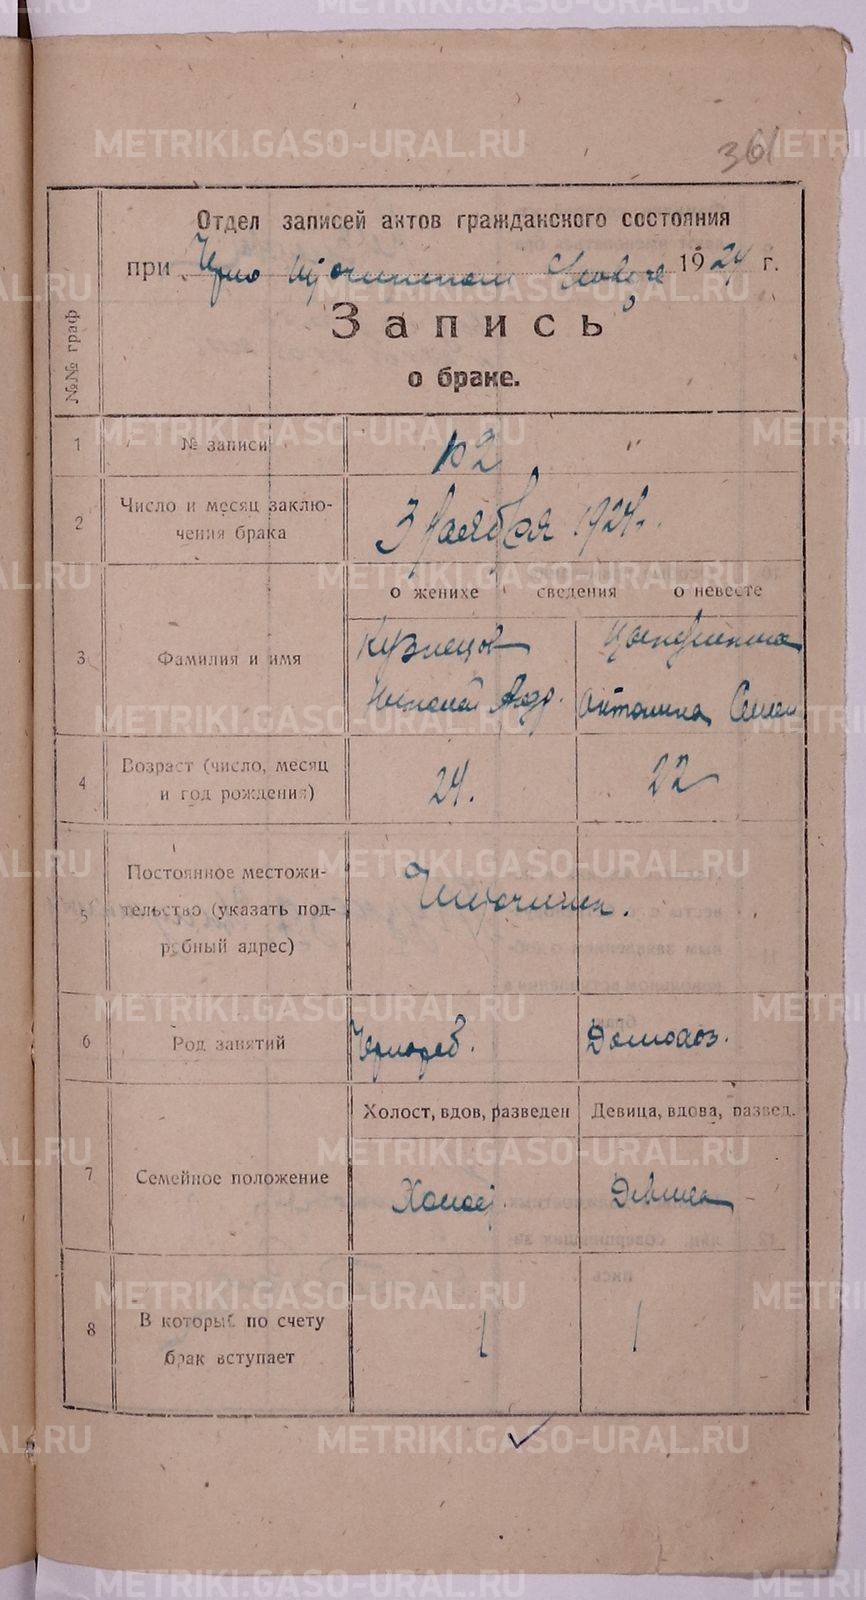 361
Отдел записей актов гражданского состояния
при Черно 1924 г.
№№ граф
Запись
о браке.
1 № записи 102 "
2 Число и месяц заклю-
чения брака
3 Ноября 1924 г.
о женихе сведения о невесте
3 Фамилия и имя
Кузнецов
Николай Андр. Антонина Семен
4 Возраст (число, месяц
и год рождения)
24. 22
5 Постоянное местожи-
тельство (указать под-
робный адрес)
6 Род занятий Чернораб. Домохоз.
Холост, вдов, разведен Девица, вдова, развед.
7 Семейное положение Холост. Девица
8 В который по счету
брак вступает
1 1
METRIKI.GASO-URAL.RU